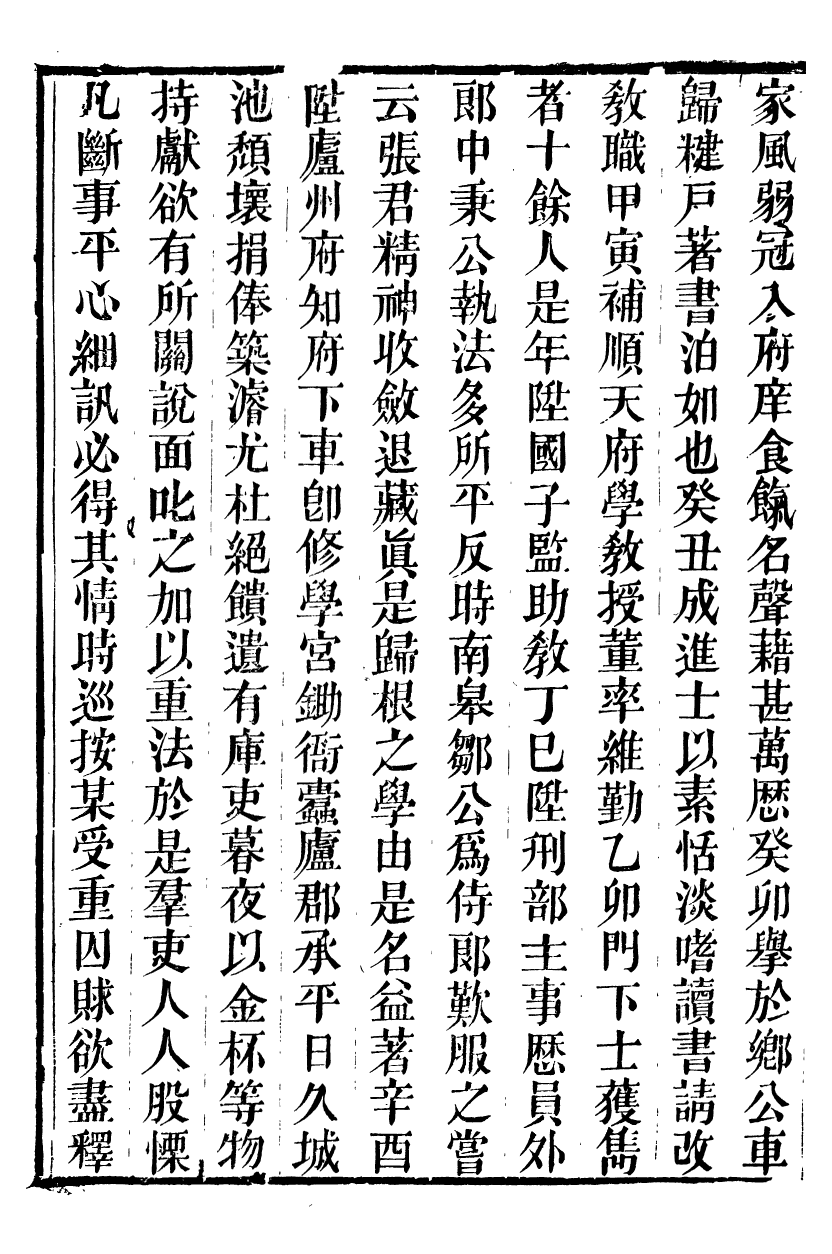 家風弱冠入府庠食餼名聲藉甚萬厯癸卯舉於鄉公車
歸楗戸著書泊如也癸丑成進士以素恬淡嗜讀書請改
敎職甲寅補順天府學敎授董率維勤乙卯門下士獲雋
者十餘人是年陞國子監助敎丁巳陞刑部主事厯員外
郎中秉公執法多所平反時南皋鄒公爲侍郎歎服之嘗
云張君精神收斂退藏眞是歸根之學由是名益著辛酉
陞廬州府知府下車卽修學宮鋤衙蠹廬郡承平日久城
池頹壞捐俸築濬尤杜絕饋遺有庫吏暮夜以金杯等物
持獻欲有所關說面叱之加以重法於是羣吏人人股慄
凡斷事平心細訊必得其情時巡按某受重囚賕欲盡釋